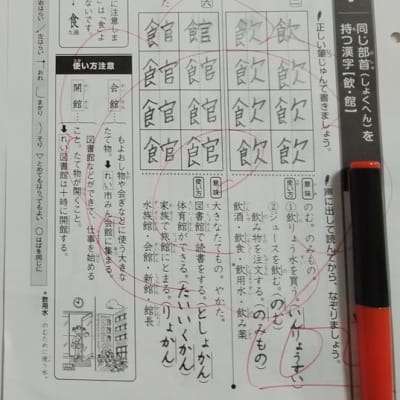 同じ部首（しょくへん）を
持つ漢字【飲・館】
正しい筆じゅんで書きましょう。
声に出して読んでから、なぞりましょう。
飲 飲
飲 飲
飲 飲
飲 飲
意味
のむ。のみもの。
使い方
①飲りょう水を買う。（いんりょうすい）
②ジュースを飲む。（のむ）
飲み物を注文する。（のみもの）
飲酒・飲食・飲用水・飲み薬
館 館
館 館
館 館
館 館
意味
大きなたてもの。やかた。
使い方
図書館で読書をする。（としょかん）
体育館ができる。（たいいくかん）
家族で旅館にとまる。（りょかん）
水族館・会館・新館・館長
に注意しま
は「食」よ
ないです。
食
使い方注意
会館…
もよおし物や会ぎなどに使う大きな
たて物。
れい市みん会館に集まる。
開館…
図書館などができて、仕事を始める
こと。たて物が開くこと。
れい図書館は十時に開館する。
＊飲用水 のむために使う水。
おれ
まがり
そり
とめてもはらってもよい
○はばを同じに